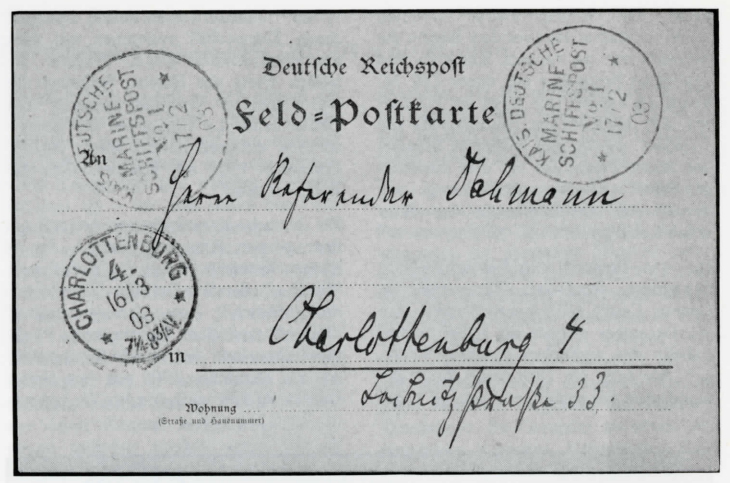 KAIS. DEUTSCHE
MARINE-
SCHIFFSPOST
No. 1
17/2
03
Deutsche Reichspost
Feld=Postkarte
KAIS. DEUTSCHE
MARINE-
SCHIFFSPOST
No. 1
17/2
03
An
Herrn Referendar Dahmann
CHARLOTTENBURG
4.
16/3
03
7¼-8¾N.
in
Charlottenburg 4
Leibnitzstraße 33.
Wohnung
(Straße und Hausnummer)